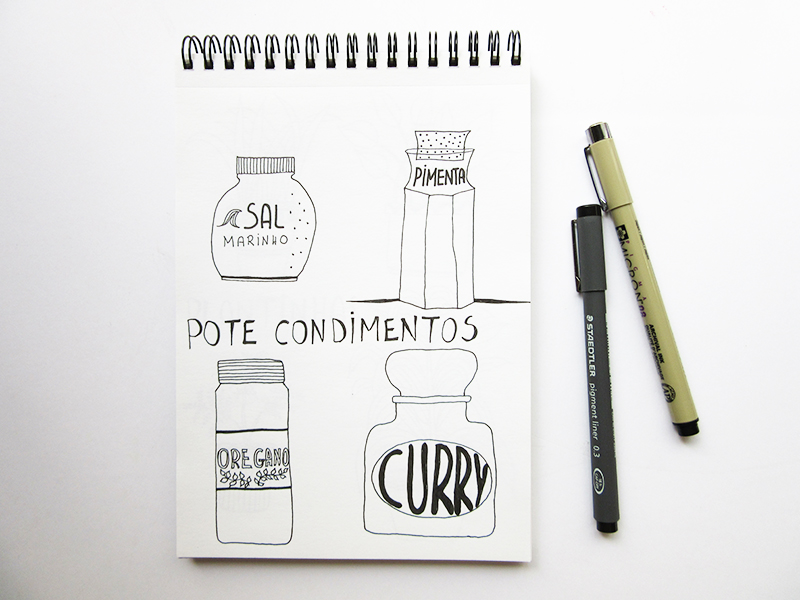 PIMENTA
SAL
MARINHO
POTE CONDIMENTOS
OREGANO
CURRY
STAEDTLER pigment liner 0.3
MICRON
ARCHIVAL INK